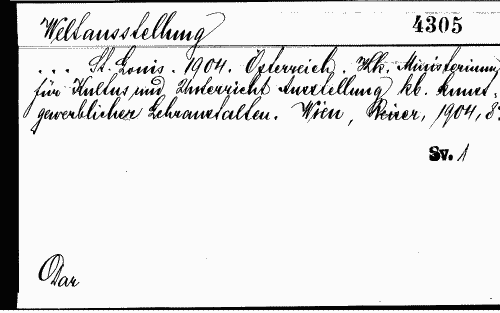 Weltausstellung 4305
... St. Louis. 1904. Österreich. K.k. Ministerium
für Kultus und Unterricht Ausstellung kk. kunst-
gewerblicher Lehranstalten. Wien, 1904, 8°
Sv. 1
Dar